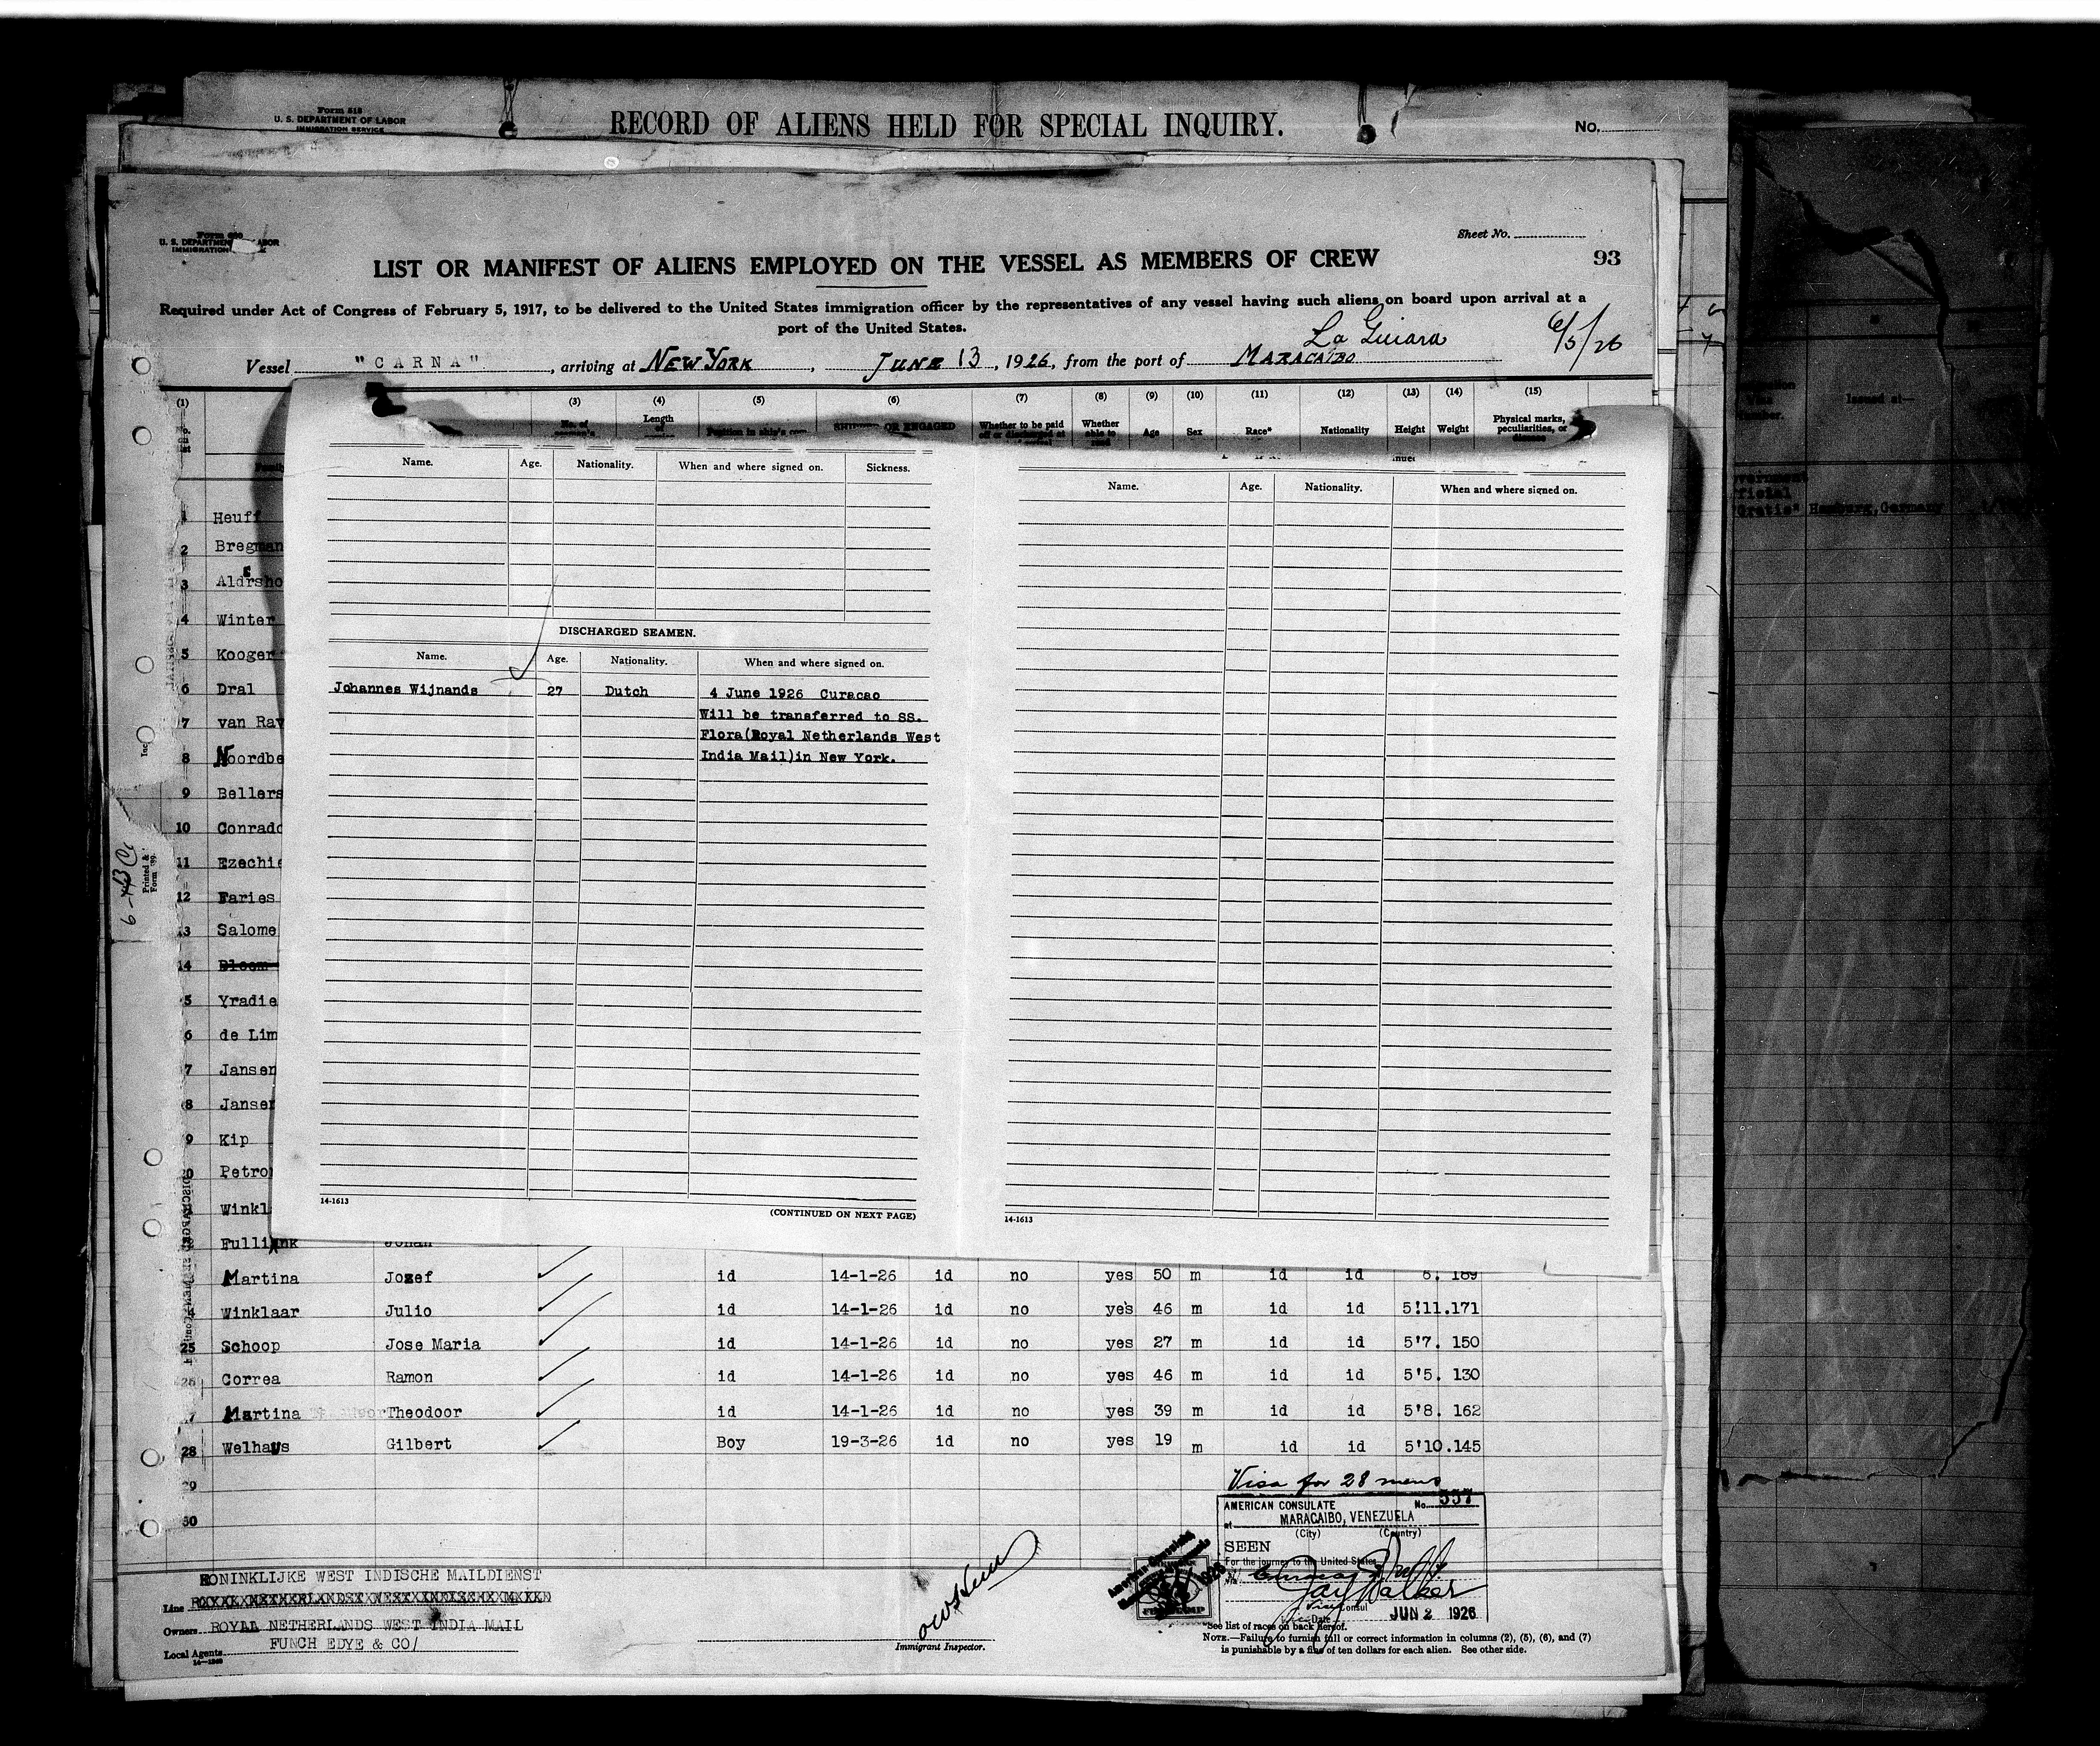 Form 518
U. S. DEPARTMENT OF LABOR
IMMIGRATION SERVICE
RECORD OF ALIENS HELD FOR SPECIAL INQUIRY.
No.
Sheet No.
93
LIST OR MANIFEST OF ALIENS EMPLOYED ON THE VESSEL AS MEMBERS OF CREW
Required under Act of Congress of February 5, 1917, to be delivered to the United States immigration officer by the representatives of any vessel having such aliens on board upon arrival at a
port of the United States.
La Guiara 6/5/26
Vessel "CARNA", arriving at NEW YORK, JUNE 13, 1926, from the port of MARACAIBO
(1) (3) (4) (5) (6) (7) (8) (9) (10) (11) (12) (13) (14) (15)
Length of Whether to be paid Whether Age Sex Race* Nationality Height Weight Physical marks, peculiarities, or disease
Name. Age. Nationality. When and where signed on. Sickness.
Name. Age. Nationality. When and where signed on.
DISCHARGED SEAMEN.
Name. Age. Nationality. When and where signed on.
Johannes Wijnands 27 Dutch 4 June 1926 Curacao
Will be transferred to SS.
Flora(Royal Netherlands West
India Mail)in New York.
14-1613
(CONTINUED ON NEXT PAGE)
14-1613
1 Heuff
2 Bregman
3 Aldrsho
4 Winter
5 Kooger
6 Dral
7 van Rav
8 Noordbe
9 Bellers
10 Conrado
11 Ezechie
12 Faries
13 Salome
14 Bloem
5 Yradie
6 de Lim
7 Jansen
8 Jansen
9 Kip
20 Petro
Winkl
Fullink Johan
Martina Jozef id 14-1-26 id no yes 50 m id id 6. 189
4 Winklaar Julio id 14-1-26 id no yes 46 m id id 5'11.171
25 Schoop Jose Maria id 14-1-26 id no yes 27 m id id 5'7. 150
26 Correa Ramon id 14-1-26 id no yes 46 m id id 5'5. 130
7 Martina Theodoor id 14-1-26 id no yes 39 m id id 5'8. 162
28 Welhays Gilbert Boy 19-3-26 id no yes 19 m id id 5'10.145
29
30
Visa for 28 mens
AMERICAN CONSULATE No. 557
at MARACAIBO, VENEZUELA
(City) (Country)
SEEN
For the journey to the United States
Consul
Date JUN 2 1926
KONINKLIJKE WEST INDISCHE MAILDIENST
Line
Owners ROYAL NETHERLANDS WEST INDIA MAIL
FUNCH EDYE & CO/
Local Agents
Immigrant Inspector.
*See list of races on back hereof.
NOTE.—Failure to furnish full or correct information in columns (2), (5), (6), and (7)
is punishable by a fine of ten dollars for each alien. See other side.
Issued at—
"Gratis" Hamburg, Germany